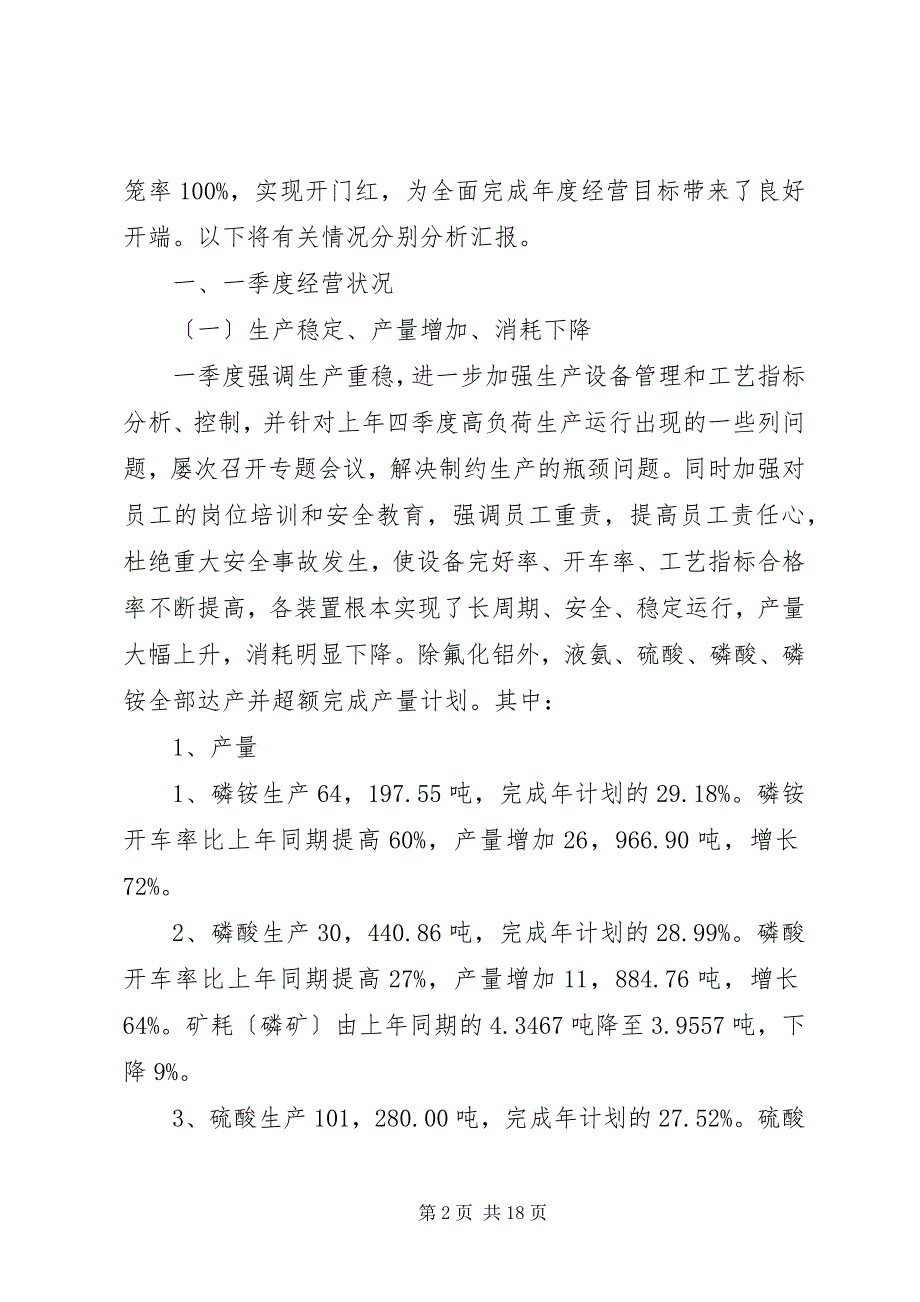 笼率100%，实现开门红，为全面完成年度经营目标带来了良好
开端。以下将有关情况分别分析汇报。
一、一季度经营状况
〔一〕生产稳定、产量增加、消耗下降
一季度强调生产重稳，进一步加强生产设备管理和工艺指标
分析、控制，并针对上年四季度高负荷生产运行出现的一些列问
题，屡次召开专题会议，解决制约生产的瓶颈问题。同时加强对
员工的岗位培训和安全教育，强调员工重责，提高员工责任心，
杜绝重大安全事故发生，使设备完好率、开车率、工艺指标合格
率不断提高，各装置根本实现了长周期、安全、稳定运行，产量
大幅上升，消耗明显下降。除氟化铝外，液氨、硫酸、磷酸、磷
铵全部达产并超额完成产量计划。其中：
1、产量
1、磷铵生产64，197.55吨，完成年计划的29.18%。磷铵
开车率比上年同期提高60%，产量增加26，966.90吨，增长
72%。
2、磷酸生产30，440.86吨，完成年计划的28.99%。磷酸
开车率比上年同期提高27%，产量增加11，884.76吨，增长
64%。矿耗〔磷矿〕由上年同期的4.3467吨降至3.9557吨，下
降9%。
3、硫酸生产101，280.00吨，完成年计划的27.52%。硫酸
第2页 共18页